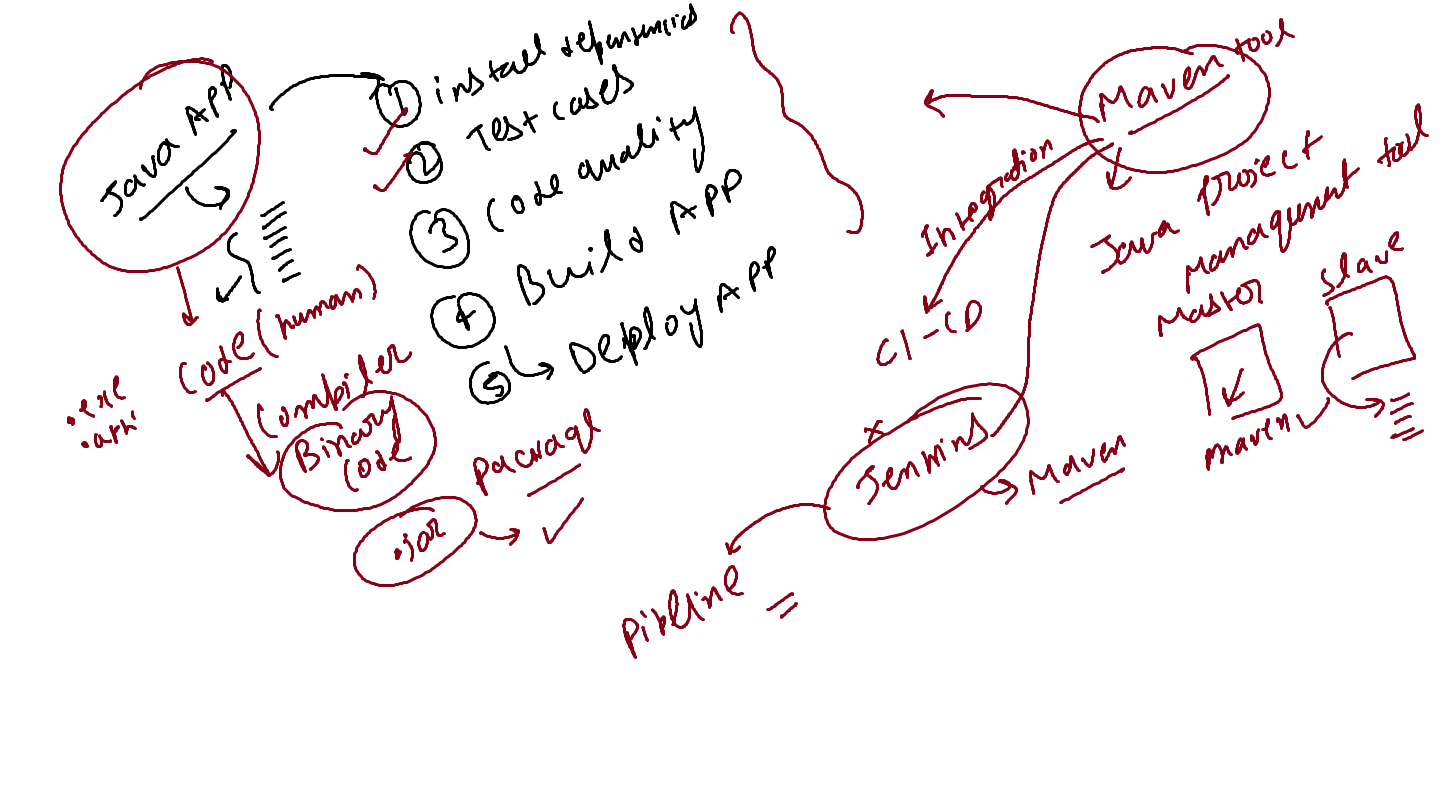 Java APP
1 install dependencies
2 Test cases
3 Code quality
4 Build APP
5 Deploy APP
Code (human)
Compiler
Binary
Code
.exe
.jar
package
Maven tool
Java project
Management tool
Integration
CI-CD
Jenkins
Maven
pipeline
Master
Slave
maven